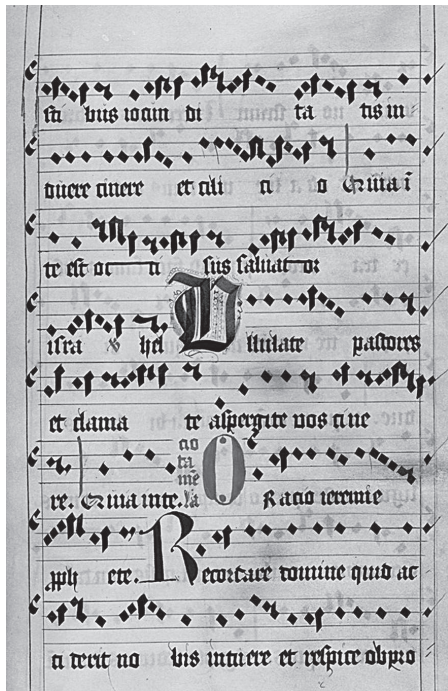 sti bus iocun di ta tis in
duere cinere et cili ci o Quia ī
te est oc ci sus saluator
isra hel Ululate pastores
et clama te aspergite vos cine
re. Quia in te. la mē ta cio Oracio ieremie
pph ete. Recordare domine quid ac
ci derit no bis intuere et respice obpro